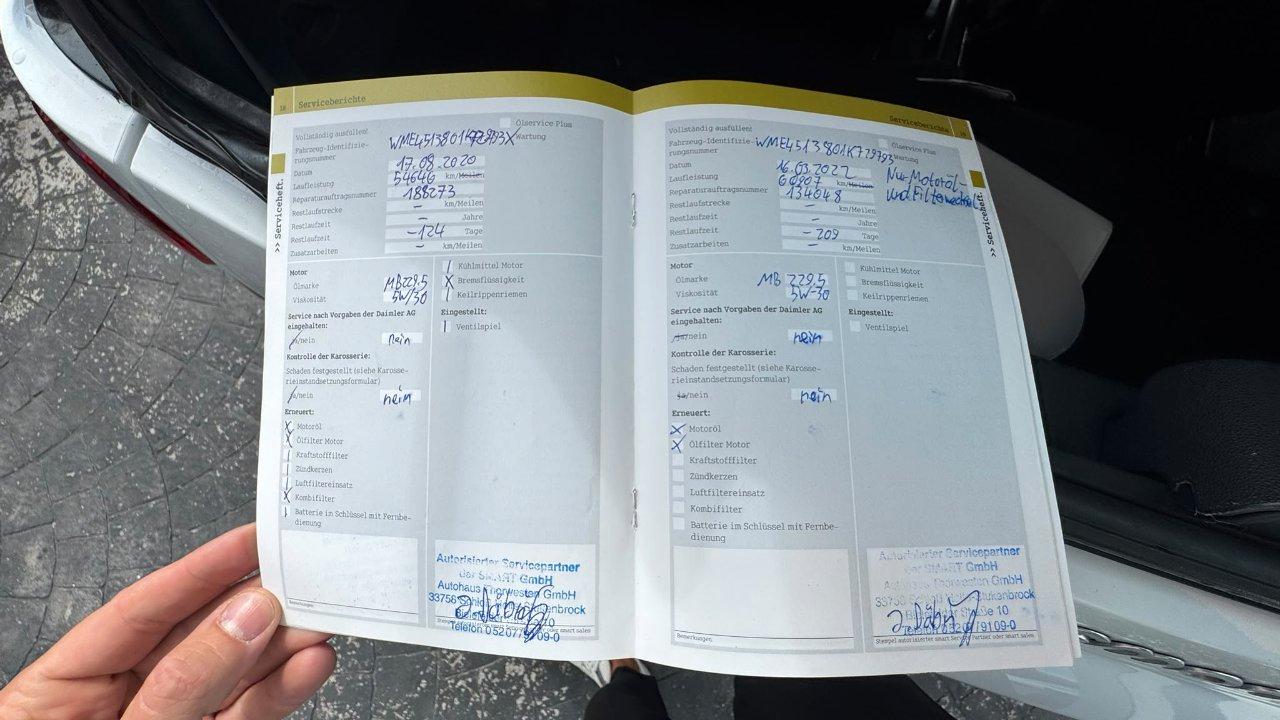 18 Serviceberichte
>> Serviceheft.
Vollständig ausfüllen!
Ölservice Plus
Fahrzeug-Identifizie-
rungsnummer
X Wartung
Datum 17.09.2020
Laufleistung 54646 km/Meilen
Reparaturauftragsnummer 188273
Restlaufstrecke – km/Meilen
Restlaufzeit – Jahre
Restlaufzeit -124 Tage
Zusatzarbeiten – km/Meilen
Motor
Ölmarke MB229.5
Viskosität 5W/30
Service nach Vorgaben der Daimler AG
eingehalten:
ja/nein nein
Kontrolle der Karosserie:
Schaden festgestellt (siehe Karosse-
rieinstandsetzungsformular)
ja/nein nein
Erneuert:
X Motoröl
X Ölfilter Motor
/ Kraftstofffilter
/ Zündkerzen
/ Luftfiltereinsatz
X Kombifilter
/ Batterie im Schlüssel mit Fernbe-
dienung
/ Kühlmittel Motor
X Bremsflüssigkeit
/ Keilrippenriemen
Eingestellt:
/ Ventilspiel
Bemerkungen
Autorisierter Servicepartner
der SMART GmbH
Autohaus Thorwesten GmbH
oder smart sales
Serviceberichte
>> Serviceheft.
Vollständig ausfüllen!
Ölservice Plus
Fahrzeug-Identifizie-
rungsnummer WME4513801K729793
Wartung
Datum 16.03.2022
Laufleistung km/Meilen
Nur Motoröl-
und Filterwechsel
Reparaturauftragsnummer 134048
Restlaufstrecke – km/Meilen
Restlaufzeit – Jahre
Restlaufzeit -209 Tage
Zusatzarbeiten – km/Meilen
Motor
Ölmarke MB 229.5
Viskosität 5W-30
Service nach Vorgaben der Daimler AG
eingehalten:
ja/nein nein
Kontrolle der Karosserie:
Schaden festgestellt (siehe Karosse-
rieinstandsetzungsformular)
ja/nein nein
Erneuert:
X Motoröl
X Ölfilter Motor
Kraftstofffilter
Zündkerzen
Luftfiltereinsatz
Kombifilter
Batterie im Schlüssel mit Fernbe-
dienung
Kühlmittel Motor
Bremsflüssigkeit
Keilrippenriemen
Eingestellt:
Ventilspiel
Bemerkungen
Autorisierter Servicepartner
der SMART GmbH
Autohaus Thorwesten GmbH
Stempel autorisierter smart Service Partner oder smart sales